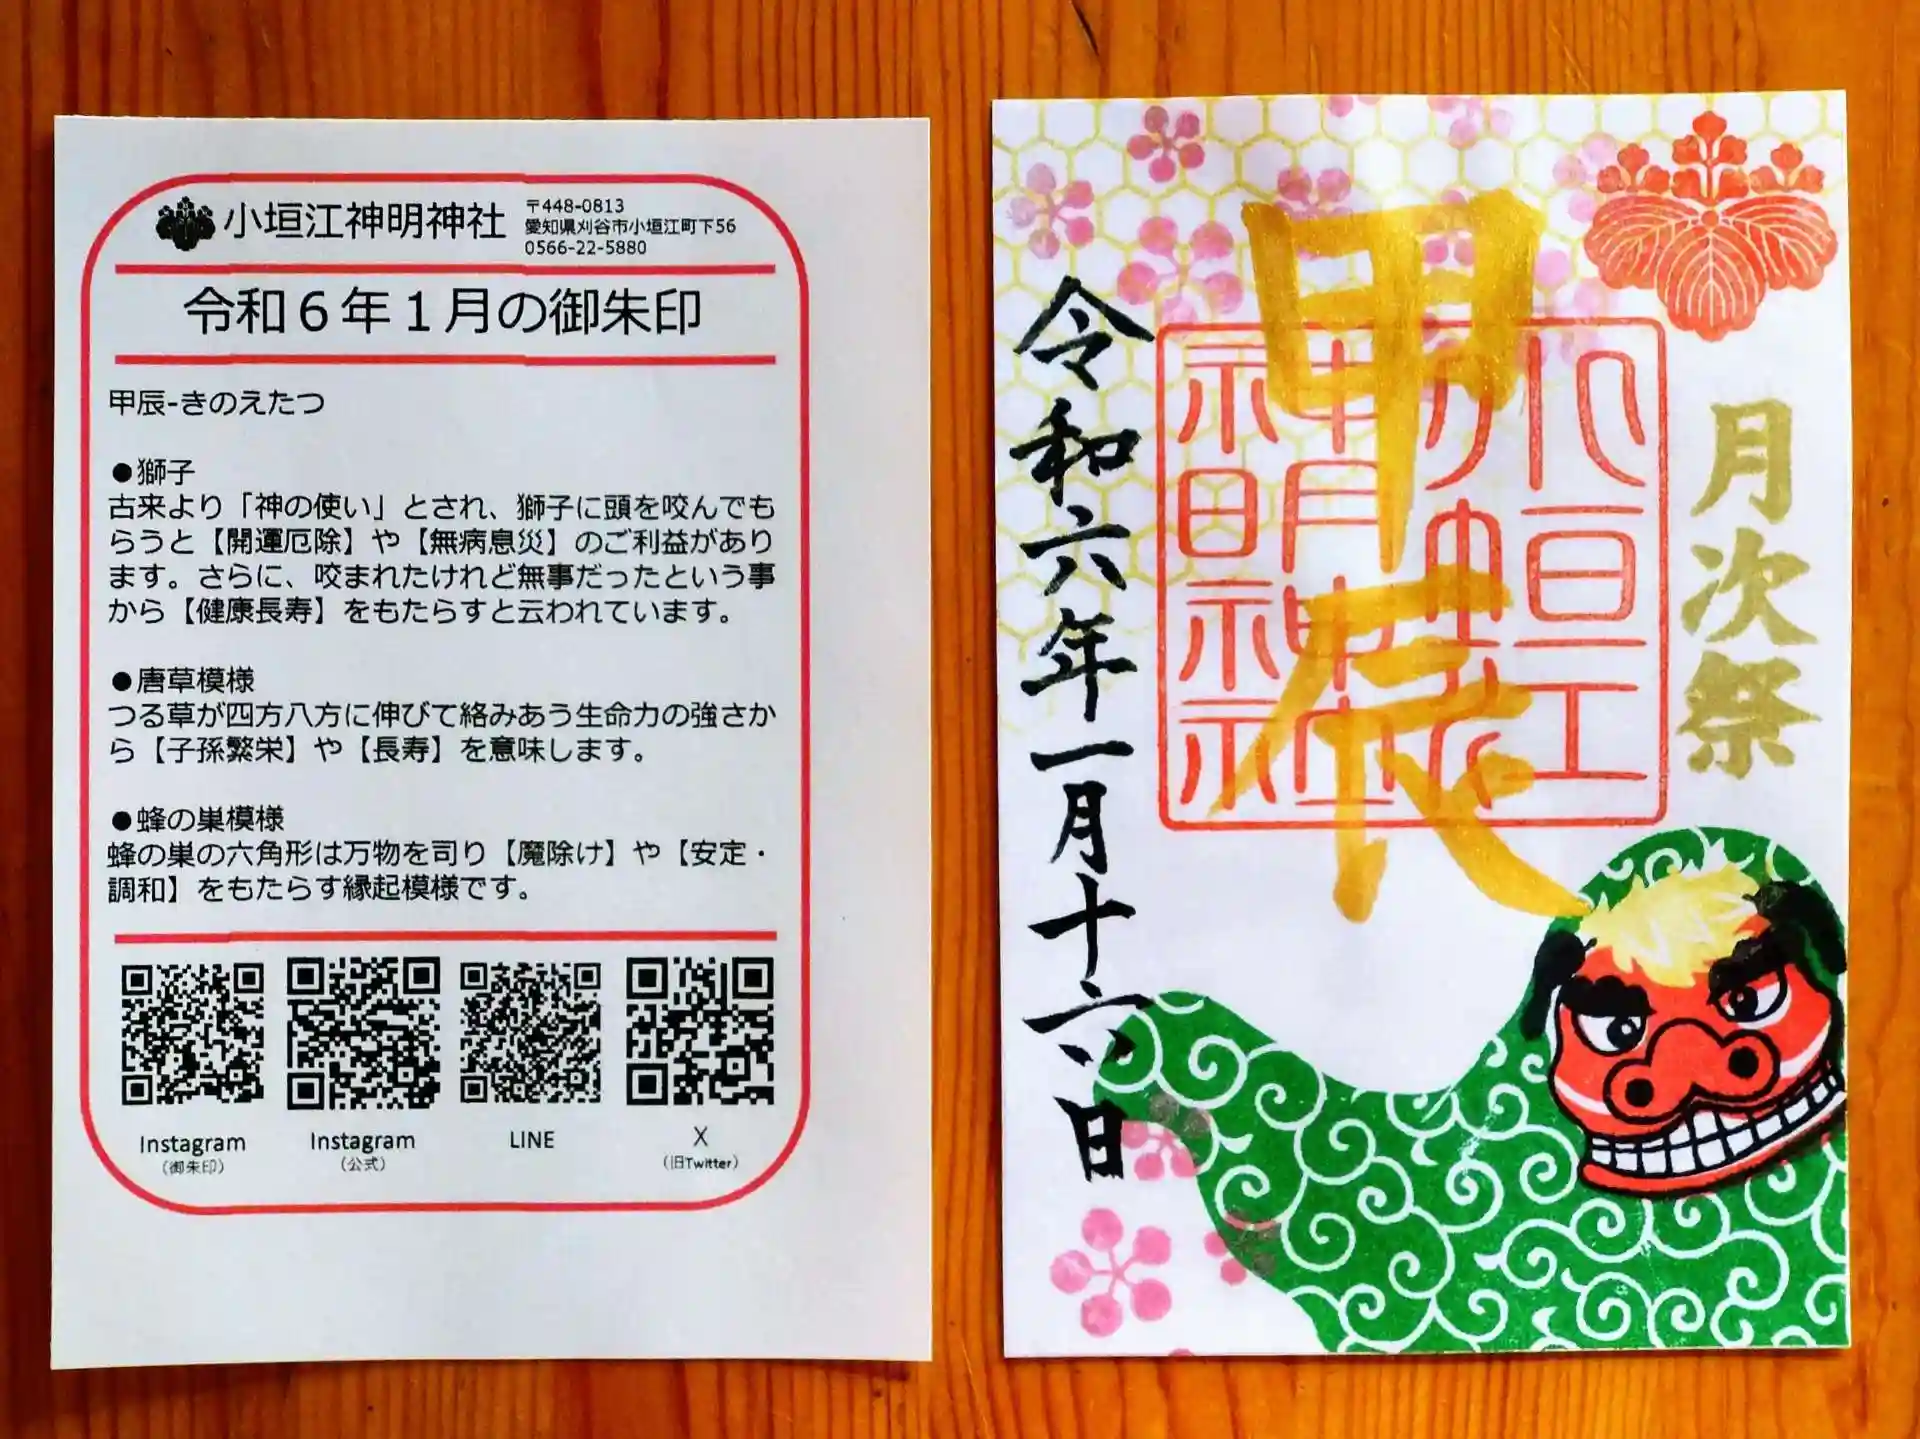 小垣江神明神社
〒448-0813
愛知県刈谷市小垣江町下56
0566-22-5880
令和６年１月の御朱印
甲辰-きのえたつ
●獅子
古来より「神の使い」とされ、獅子に頭を咬んでも
らうと【開運厄除】や【無病息災】のご利益があり
ます。さらに、咬まれたけれど無事だったという事
から【健康長寿】をもたらすと云われています。
●唐草模様
つる草が四方八方に伸びて絡みあう生命力の強さか
ら【子孫繁栄】や【長寿】を意味します。
●蜂の巣模様
蜂の巣の六角形は万物を司り【魔除け】や【安定・
調和】をもたらす縁起模様です。
Instagram
（御朱印）
Instagram
（公式）
LINE
X
（旧Twitter）
月次祭
甲辰
令和六年一月十六日